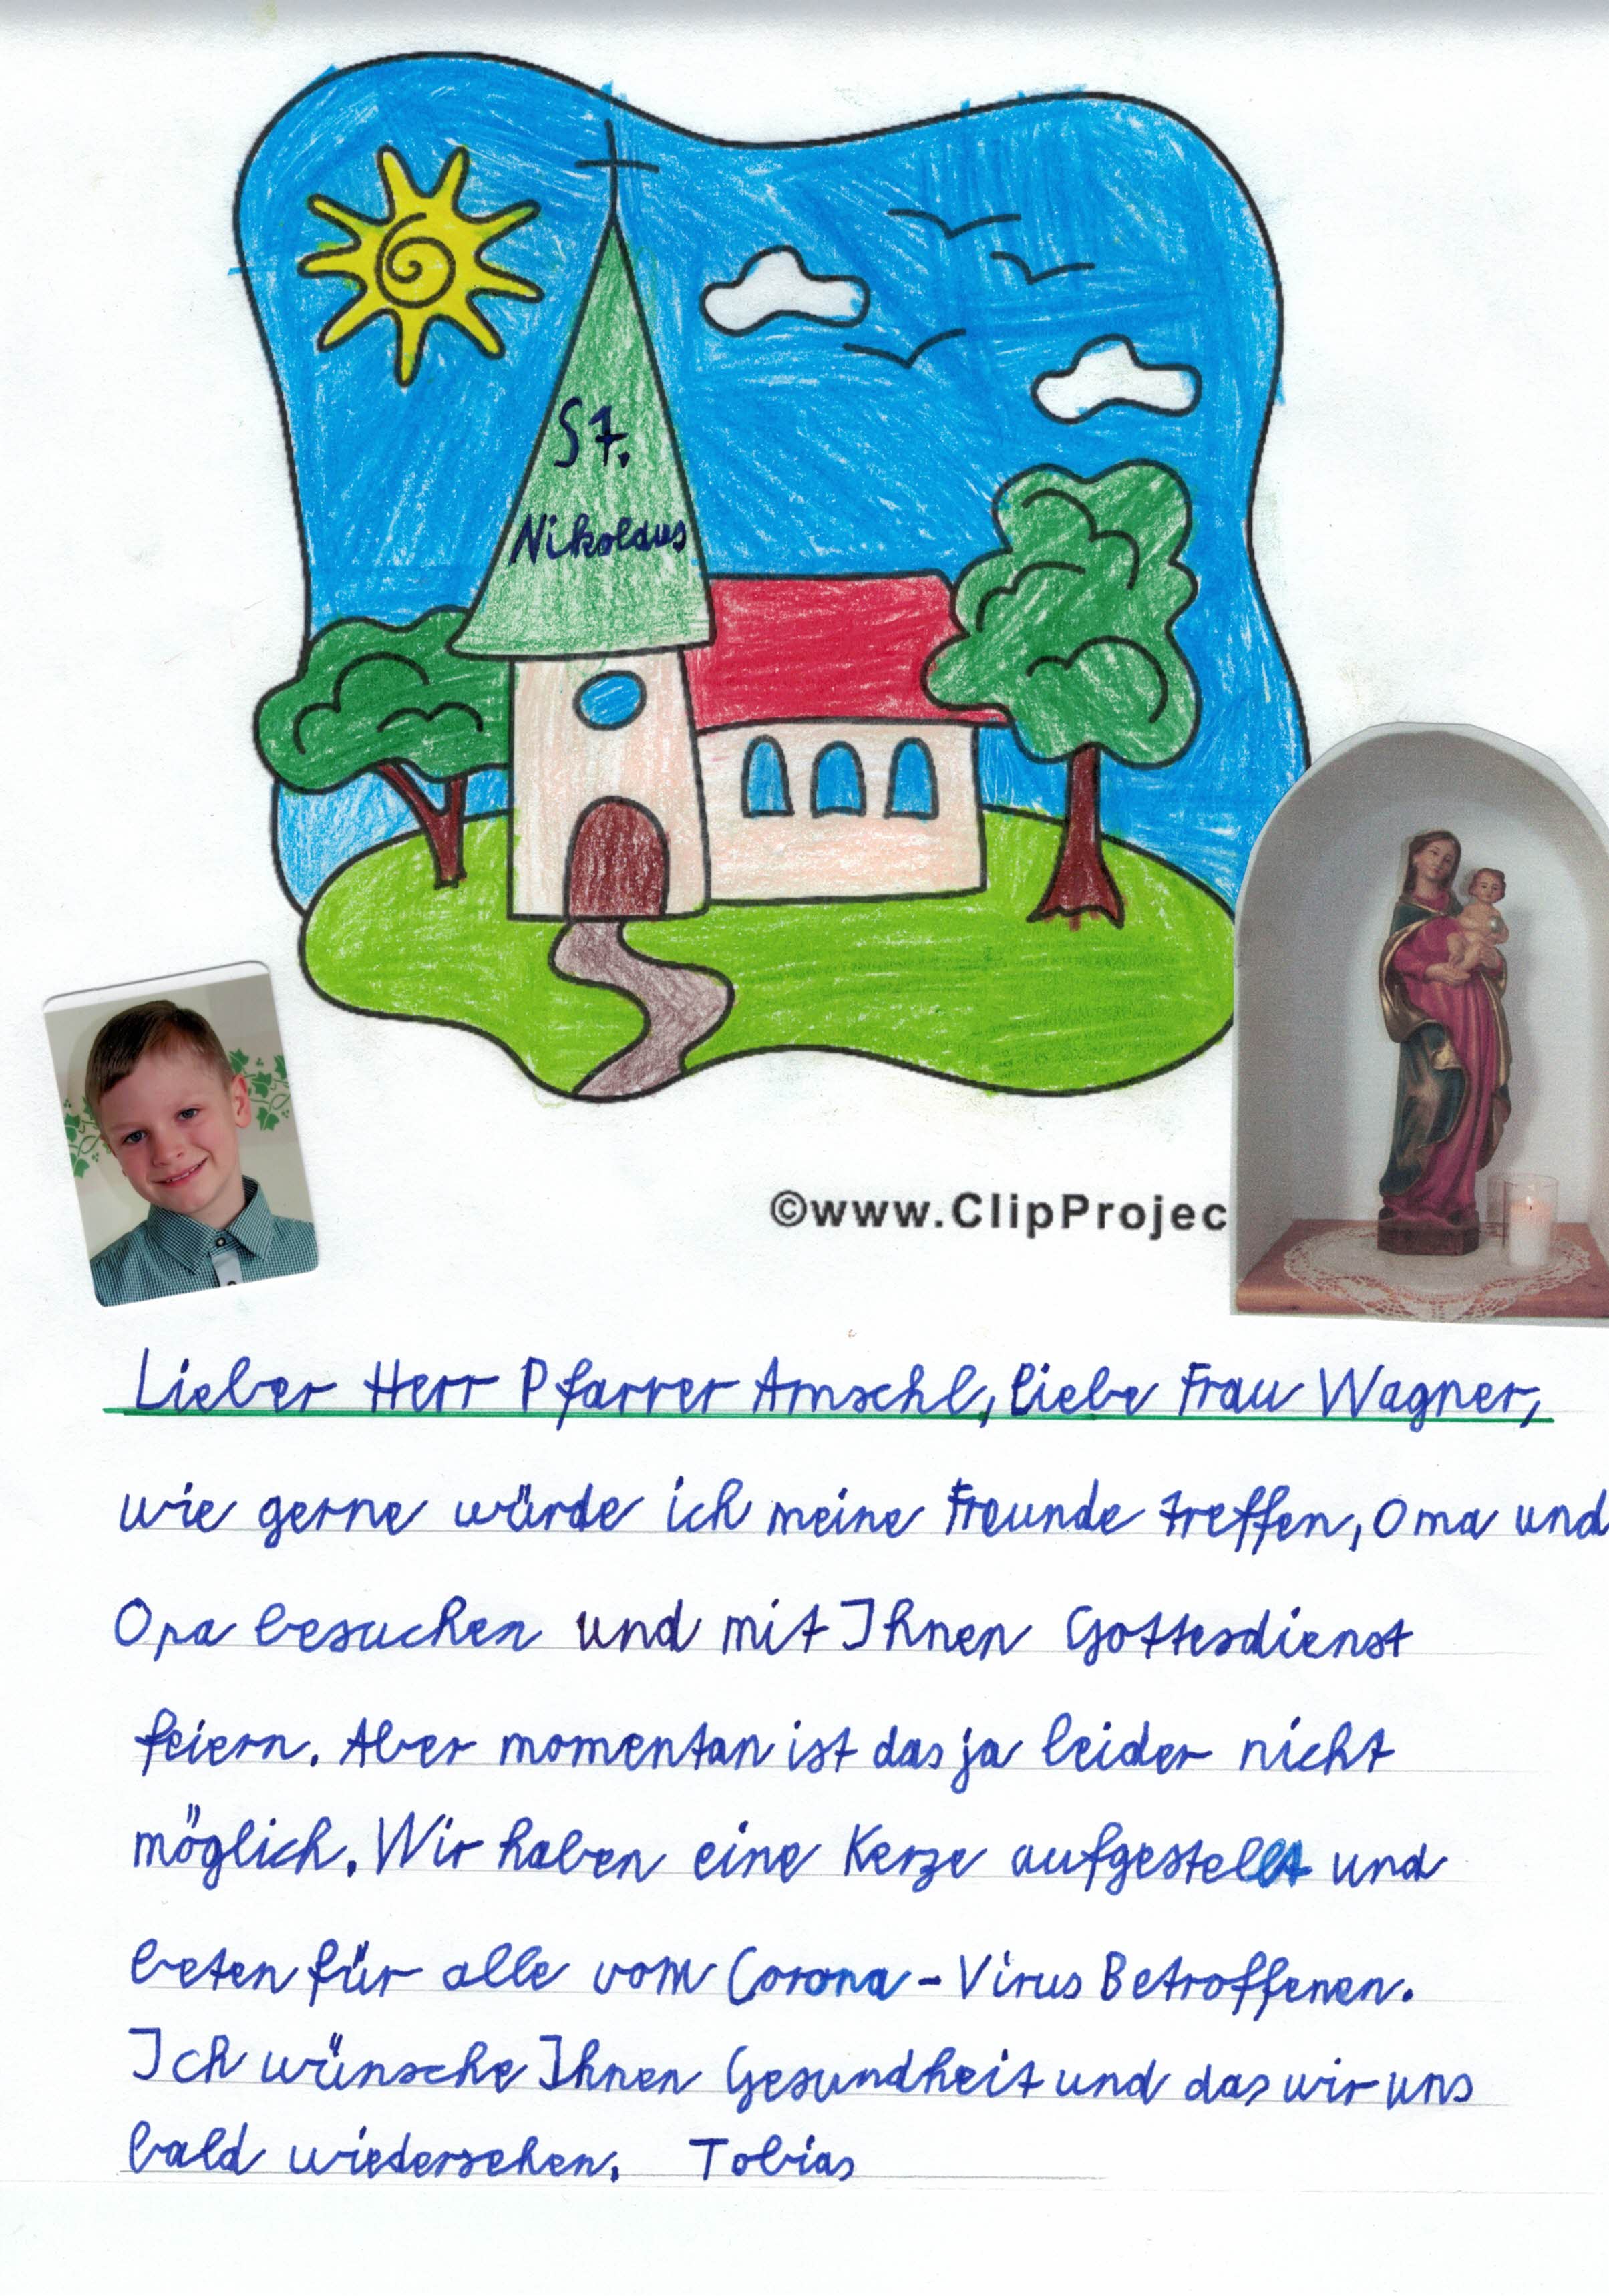 St.
Nikolaus
©www.ClipProjec
Lieber Herr Pfarrer Amschl, liebe Frau Wagner,
wie gerne würde ich meine Freunde treffen, Oma und
Opa besuchen und mit Ihnen Gottesdienst
feiern. Aber momentan ist das ja leider nicht
möglich. Wir haben eine Kerze aufgestellt und
beten für alle vom Corona-Virus Betroffenen.
Ich wünsche Ihnen Gesundheit und das wir uns
bald wiedersehen. Tobias